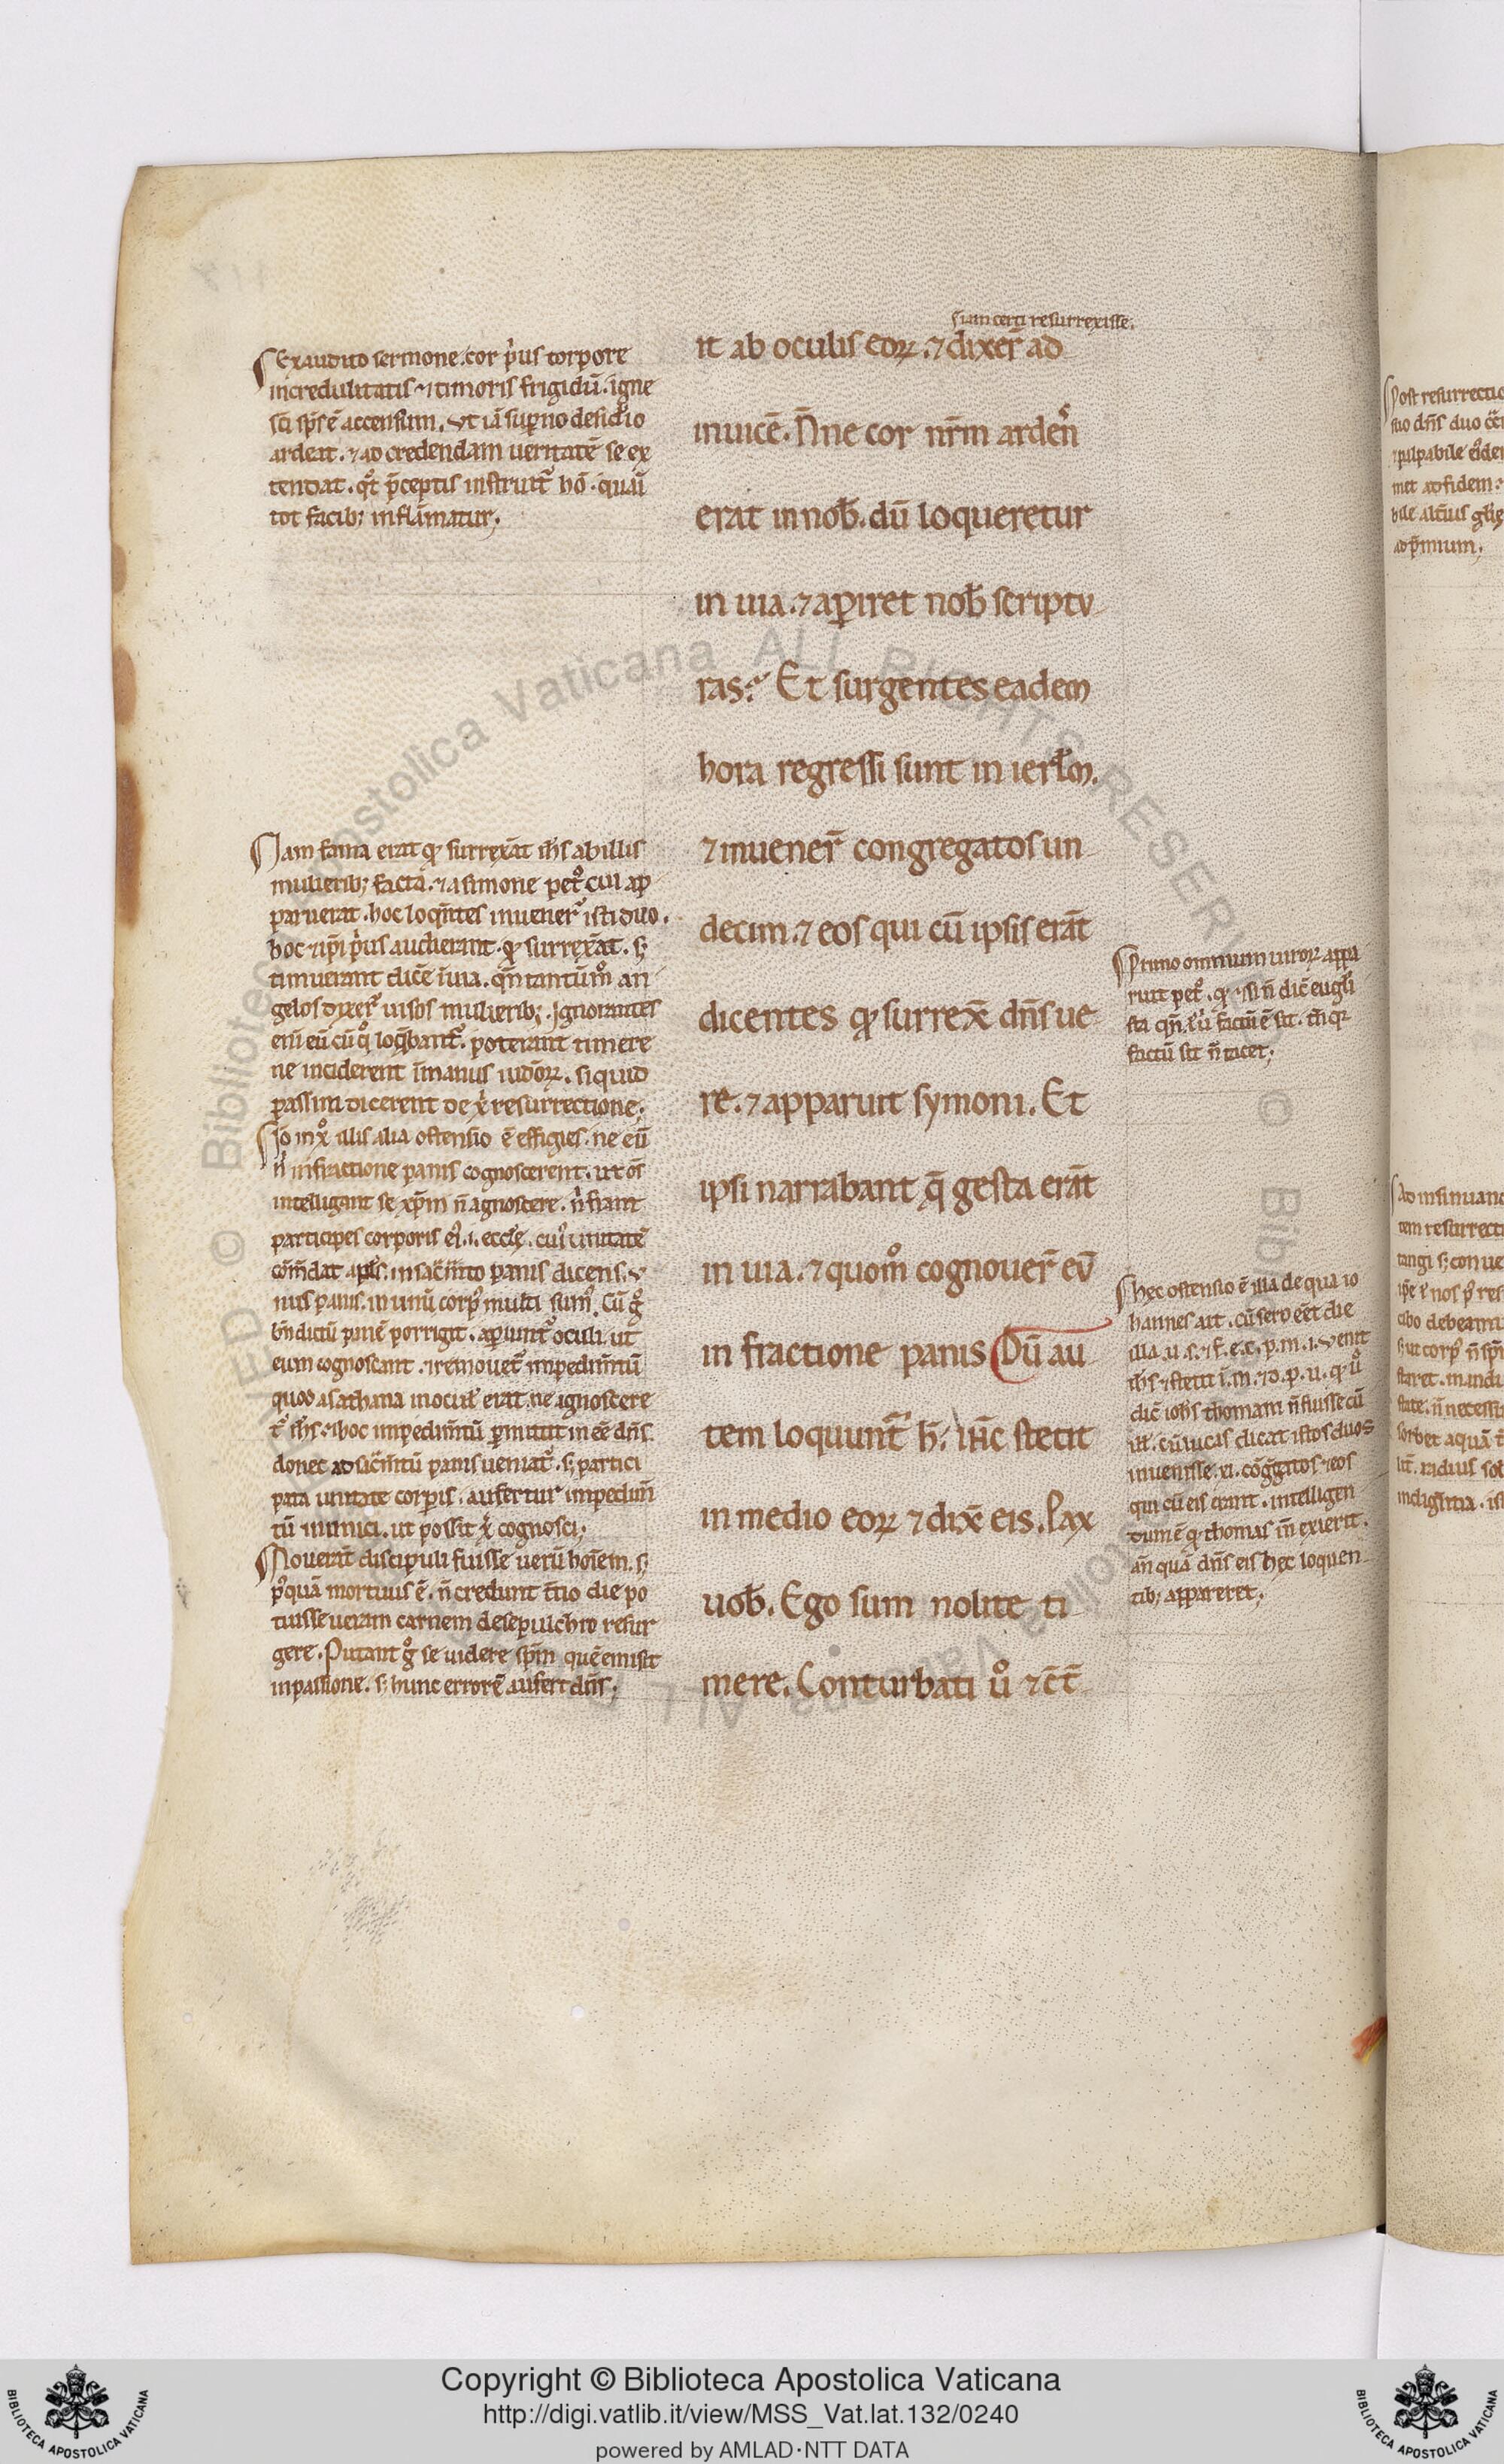 Exaudito sermone. cor p̓us torpore
incredulitatis ⁊ timoris frigidū. igne
sc̄i sp̄s ē accensum. Vt iā superno desid̓io
ardeat. ⁊ ad credendam ueritatē se ex
tendat. qͦt p̄ceptis instruit᷑ hō. quasi
tot facib; inflāmatur.
Jam fama erat qꝫ surrexāt ih̄s ab illis
mulierib; facta. ⁊ a simone petͦ cui ap
paruerat. hoc loq̄ntes inuener̄ isti duo.
hoc ⁊ ip̄i p̓us audierant. qꝫ surrexāt. sꝫ
timuerant dicē ī uia. qn̄ tantūmͦ an
gelos dixer̄ uisos mulierib;. Ignorantes
eni eū cū qͦ loq̄bant᷑. poterant timere
ne inciderent ī manus iudeoꝝ. si quid
passim dicerent de xp̄i resurrectione;
illis alia ostensio ē effigies. ne eū
n̓ in fractione panis cognoscerent. ut om̄s
intelligant se xp̄m n̄ agnoscere. n̓ fiant
participes corporis ei᷒. i. eccl̄ę. cui᷒ unitatē
cōm̄dat apl̄s. in sac̄m̄to panis dicens. v
nus panis. in unū corp᷒ multi sum᷒. Cū gͦ
bn̄dictū panē porrigit. aperiunt᷑ oculi ut
eum cognoscant. ⁊ remouet᷑ impedim̄tū
quod a sathana in oculis erat. ne agnoscere
t᷑ ih̄s. ⁊ hoc impedim̄tū permittit inee dn̄s
donec ad sac̄m̄tū panis ueniat᷑. sꝫ partici
pata unitate corporis. aufertur impedim̄
tū inimici. ut possit xp̄c cognosci;
Nouerāt discipuli fuisse uerū hoīem. sꝫ
p᷒quā mortuus ē. n̄ credunt t̄tio die po
tuisse ueram carnem de sepulchro resur
gere. Putant gͦ se uidere sp̄m quē emisit
in passione. sꝫ hunc errorē aufert dn̄s;
sum certi resurrexisse.
it ab oculis eoꝝ. ⁊ dixer̄ ad
inuicē. Nōne cor nr̄m ardēn
erat in nob̄. dū loqueretur
in uia. ⁊ aperiret nob̄ scriptv
ras? Et surgentes eadem
hora regressi sunt in ierl̄m.
⁊ inuener̄ congregatos un
decim. ⁊ eos qui cū ipsis erāt
dicentes qꝫ surrex̄ dn̄s ue
re. ⁊ apparuit symoni. Et
ipsi narrabant q̄ gesta erāt
in uia. ⁊ quomͦ cognouer̄ ev̄
in fractione panis Dū au
tem loquunt᷑ h̄. ih̄c stetit
in medio eoꝝ ⁊ dix̄ eis. Pax
uob̄. Ego sum nolite ti
mere. Conturbati uͦ ⁊ct̄
Primo omnium uiroꝝ appa
ruit petͦ. qꝫ ⁊ si n̄ dic̄ eugl̄i
sta qn̄ t̓ u̓ factū ē sit. tn̄ qꝫ
factū sit n̄ tacet;
Hęc ostensio ē illa de qua io
hannes ait. cū sero eēt die
illa. u. s. ⁊ f. e. c. p. m. i. venit
ih̄s ⁊ stetit ī. m. ⁊ d. p. u. qꝫ uͦ
dic̄ ioh̄s thomam n̄ fuisse cū
ill̄. cū lucas dicat istos duos
inuenisse. xi. cōg̃gatos ⁊ eos
qui cū eis erant. intelligen
dum ē qꝫ thomas īn exierit.
an̄ quā dn̄s eis hęc loquen
tib; appareret;
Post resurrectio
ad p̄mium.
Ad insinuand
tangi sꝫ con ue
cibo debeam
sorbet aquā
Copyright © Biblioteca Apostolica Vaticana
http://digi.vatlib.it/view/MSS_Vat.lat.132/0240
powered by AMLAD·NTT DATA
BIBLIOTECA APOSTOLICA VATICANA
BIBLIOTECA APOSTOLICA VATICANA